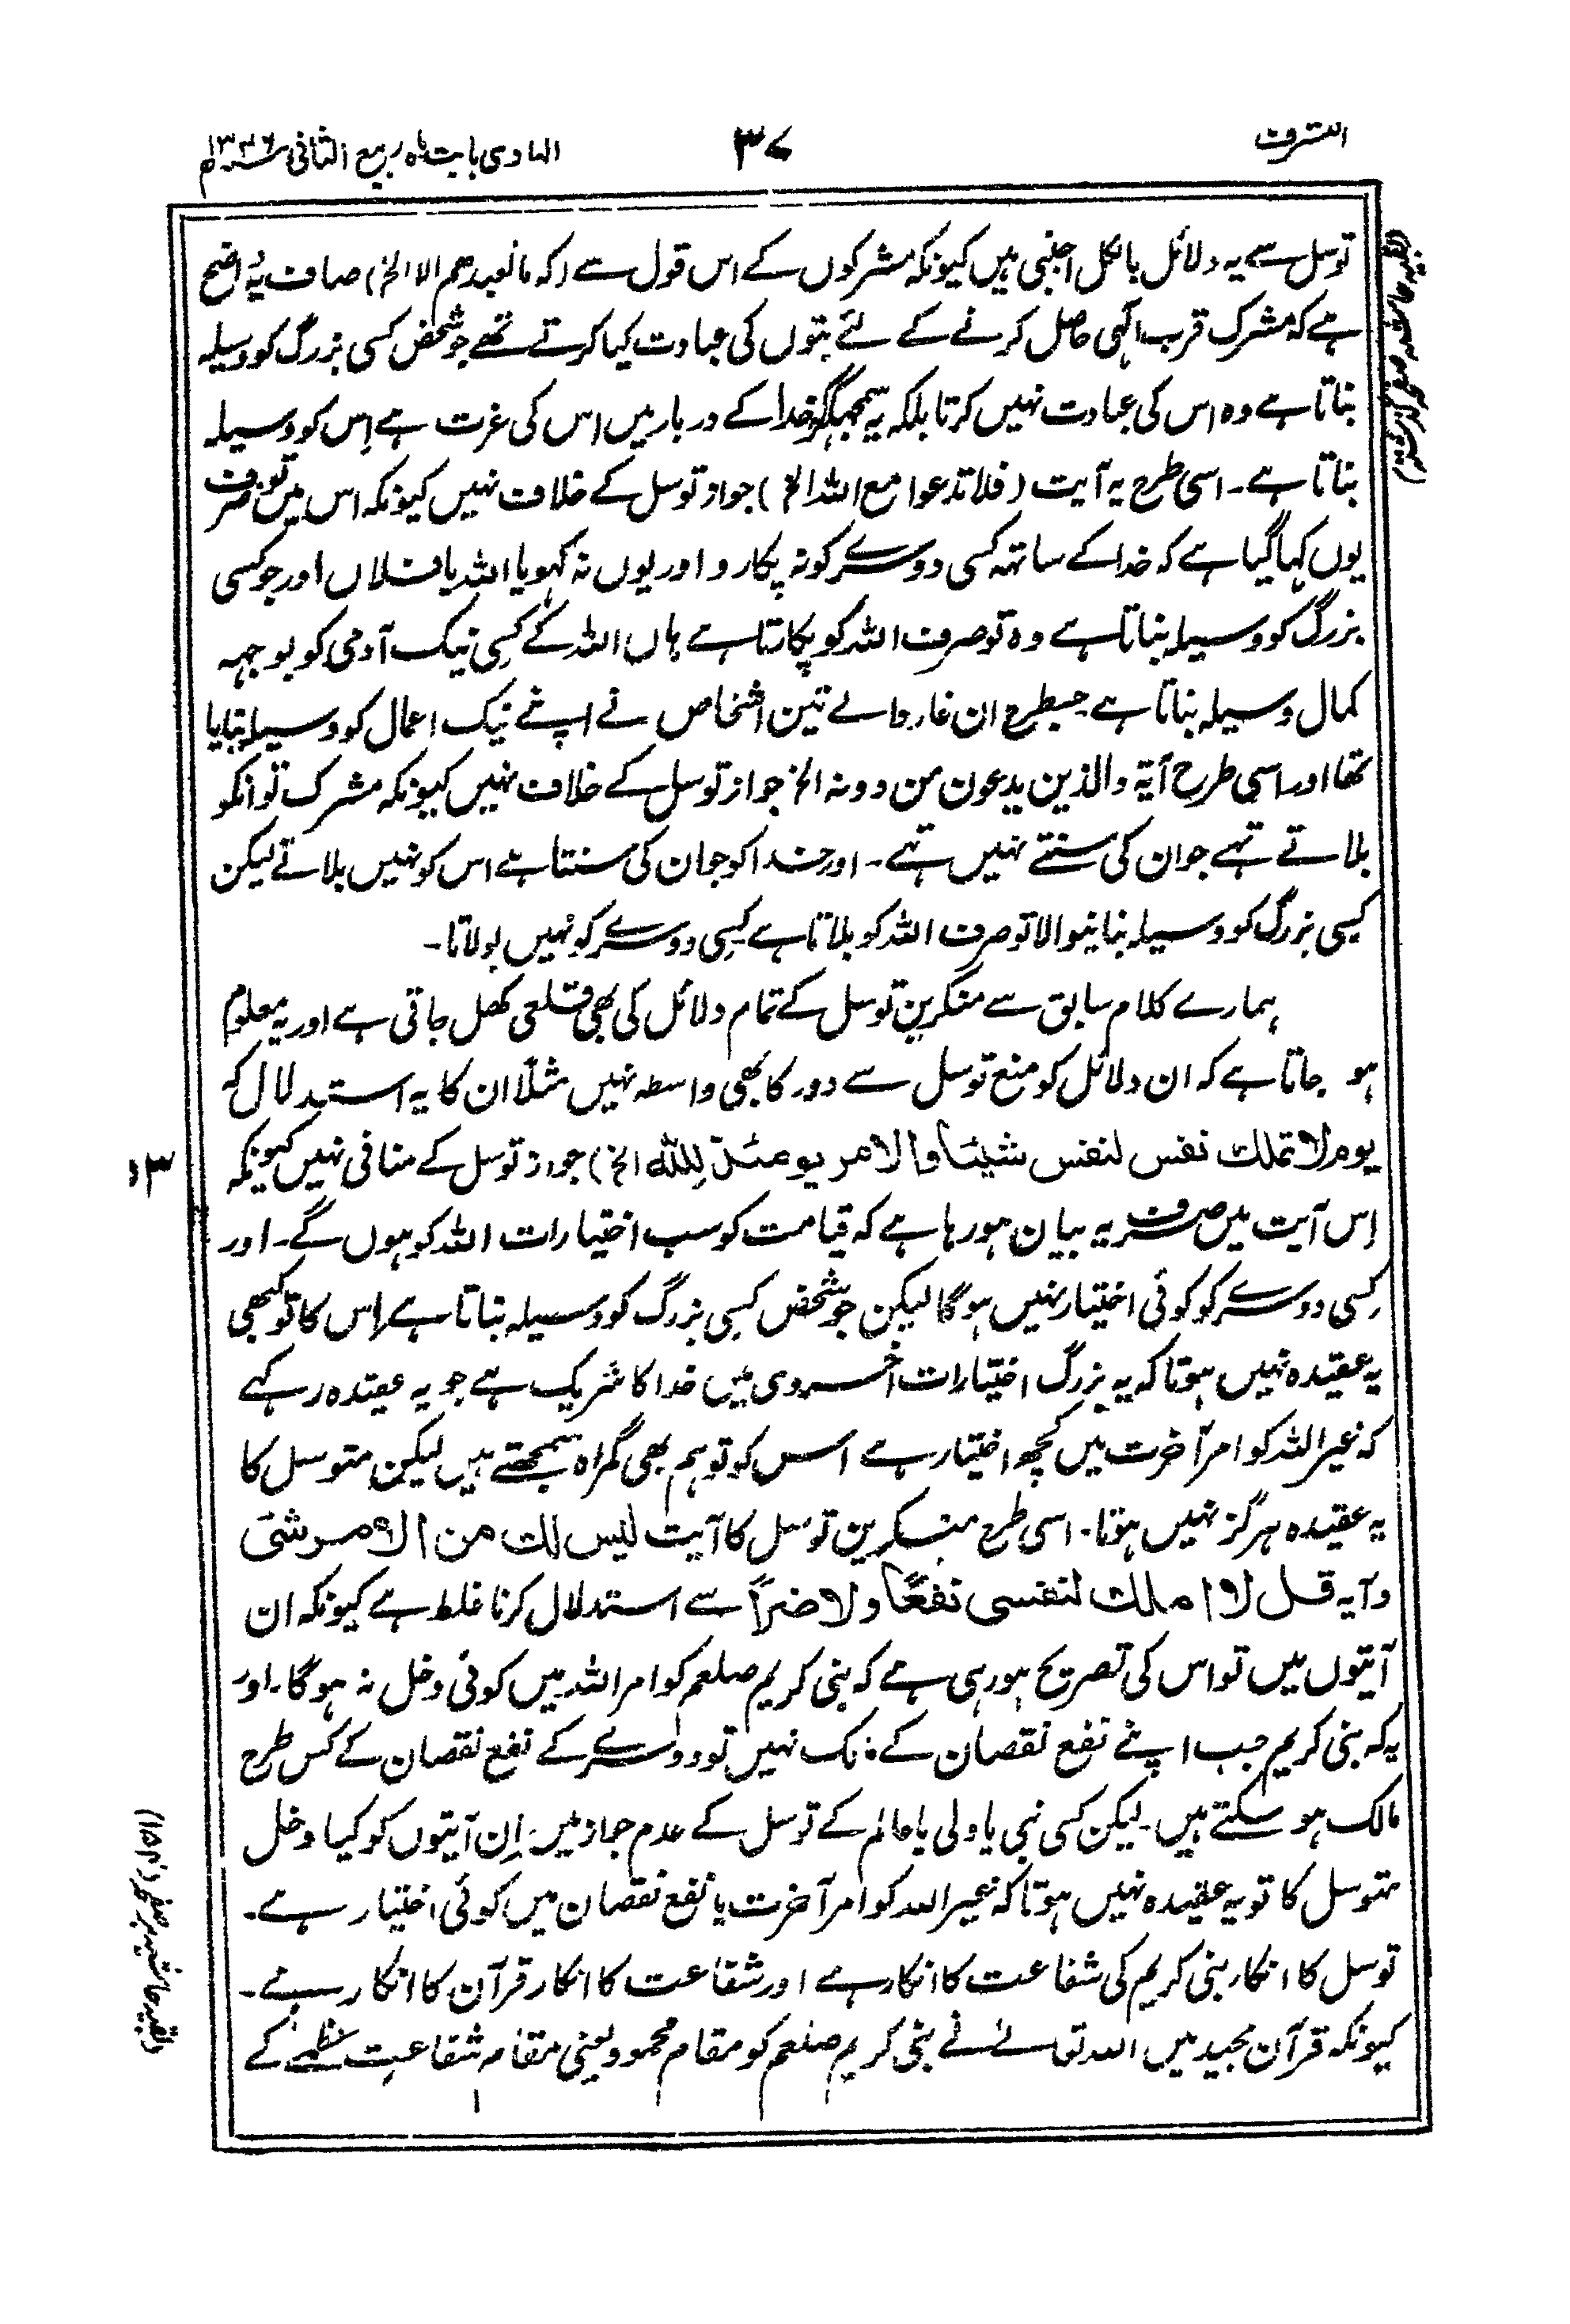 التشرف
۳۷
الہادی بابت ماہ ربیع الثانی ۱۳۳۶ھ
(بقیہ حاشیہ صفحہ گذشتہ)
توسل سے یہ دلائل بالکل اجنبی ہیں کیونکہ مشرکوں کے اس قول سے (کہ مانعبدھم الا الخ) صاف یہ واضح
ہے کہ مشرک قرب الٰہی حاصل کرنے کے لئے بتوں کی عبادت کیا کرتے تھے جو شخص کسی بزرگ کو وسیلہ
بناتا ہے وہ اس کی عبادت نہیں کرتا بلکہ یہ سمجھکر خدا کے دربار میں اس کی عزت ہے اِس کو وسیلہ
بناتا ہے۔ اسی طرح یہ آیت (فلا تدعوا مع اللہ الخ) جواز توسل کے خلاف نہیں کیونکہ اس میں تو صرف
یوں کہا گیا ہے کہ خدا کے ساتھ کسی دوسرے کو نہ پکارو اور یوں نہ کہو یا اللہ یا فلاں اور جو کسی
بزرگ کو وسیلہ بناتا ہے وہ تو صرف اللہ کو پکارتا ہے ہاں اللہ کے کسِی نیک آدمی کو بوجہہ
کمال وسیلہ بناتا ہے جسطرح ان غار والے تین اشخاص نے اپنے نیک اعمال کو وسیلہ بنایا
تھا اور اسی طرح آیۃ والذین یدعون من دونہ الخ جواز توسل کے خلاف نہیں کیونکہ مشرک تو انکو
بلاتے تہے جو ان کی سنتے نہیں تہے۔ اور خدا کو جو ان کی سنتا ہے اس کو نہیں بلاتے لیکن
کسِی بزرگ کو وسیلہ بنانیوالا تو صرف اللہ کو بلاتا ہے کسِی دوسرے کو نہیں بولاتا۔
ہمارے کلام سابق سے منکرین توسل کے تمام دلائل کی بھی قلعی کھل جاتی ہے اور یہ معلوم
ہو جاتا ہے کہ ان دلائل کو منع توسل سے دور کا بھی واسطہ نہیں مثلاً ان کا یہ استدلال کہ
یوم لا تملک نفس لنفس شیئا والامر یومئذ للہ الخ) جواز توسل کے منافی نہیں کیونکہ
۱۳
اِس آیت میں صرف یہ بیان ہو رہا ہے کہ قیامت کو سب اختیارات اللہ کو ہوں گے۔ اور
کِسی دوسرے کو کوئی اختیار نہیں ہوگا لیکن جو شخص کسِی بزرگ کو وسیلہ بناتا ہے اِس کا تو کبھی
یہ عقیدہ نہیں ہوتا کہ یہ بزرگ اختیارات اُخروی میں خدا کا شریک ہے جو یہ عقیدہ رکہے
کہ غیر اللہ کو امر آخرت میں کچھ اختیار ہے اس کو تو ہم بھی گمراہ سمجھتے ہیں لیکن متوسل کا
یہ عقیدہ ہرگز نہیں ہوتا۔ اسی طرح منکرین توسل کا آیت لیس لک من الامر شئ
وآیہ قل لا املک لنفسی نفعًا ولا ضراً سے استدلال کرنا غلط ہے کیونکہ ان
آیتوں میں تو اس کی تصریح ہو رہی ہے کہ نبی کریم صلعم کو امر اللہ میں کوئی دخل نہ ہوگا۔ اور
یہ کہ نبی کریم جب اپنے نفع نقصان کے مالک نہیں تو دوسرے کے نفع نقصان کے کس طرح
مالک ہو سکتے ہیں۔ لیکن کسی نبی یا ولی یا عالم کے توسل کے عدم جواز میں اِن آیتوں کو کیا دخل
متوسل کا تو یہ عقیدہ نہیں ہوتا کہ غیر اللہ کو امر آخرت یا نفع نقصان میں کوئی اختیار ہے۔
توسل کا انکار نبی کریم کی شفاعت کا انکار ہے اور شفاعت کا انکار قرآن کا انکار ہے۔
کیونکہ قرآن مجید میں اللہ تعالےٰ نے نبی کریم صلعم کو مقام محمود یعنی مقام شفاعت عظمےٰ کے
(بقیہ حاشیہ بر صفحہ